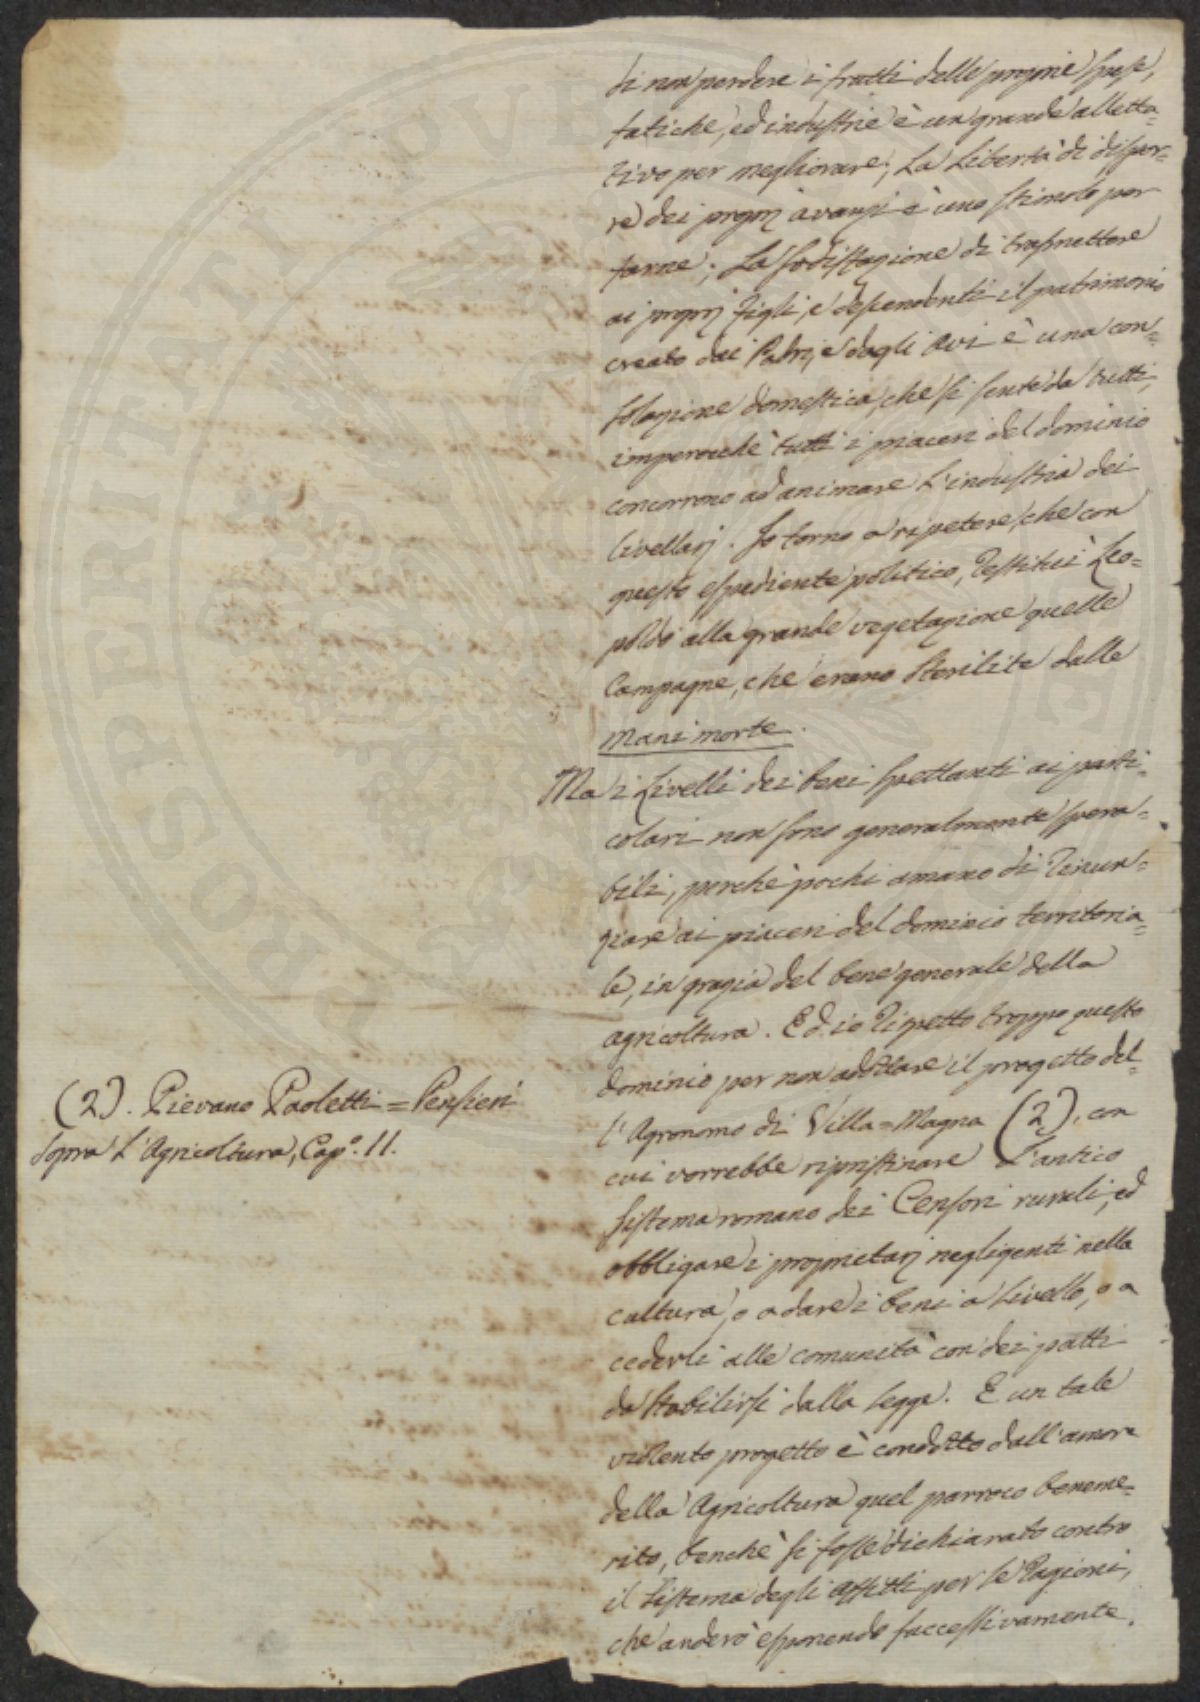 di non perdere i frutti delle proprie spese,
fatiche, ed industrie è un grande alletta=
tivo per megliorare; La Libertà di dispor=
re dei proprj avanzi è uno stimolo per
farne; La sodisfazione di trasmettere
ai proprj figli, e descendenti il patrimonio
creato dai Padri, e dagli Avi è una con=
solazione domestica, che si sente da tutti,
imperocchè tutti i piaceri del dominio
concorrono ad animare l'industria dei
livellarj. Io torno a ripetere, che con
questo espediente politico, restituì Leo=
poldo alla grande vegetazione quelle
Campagne, che erano sterilite dalle
Mani morte.
Ma i Livelli dei beni spettanti ai parti=
colari non sono generalmente spera=
bili, perchè pochi amano di rinun=
ziare ai piaceri del dominio territoria=
le, in grazia del bene generale della
agricoltura. Ed io rispetto troppo questo
dominio per non adottare il progetto del=
l'Agronomo di Villa=Magna (2), con
cui vorrebbe ripristinare l'antico
sistema romano dei Censori rurali, ed
obbligare i proprietarj negligenti nella
cultura, o a dare i beni a livello, o a
cederli alle comunità con dei patti
da stabilirsi dalla legge. E un tale
violento progetto è condotto dall'amore
della Agricoltura quel parroco beneme=
rito, benchè si fosse dichiarato contro
il sistema degli affitti per le ragioni,
che anderò esponendo successivamente.
(2). Pievano Paoletti = Pensieri
sopra l'Agricoltura, Cap.º 11.
PUBLICAE
PROSPERITATI